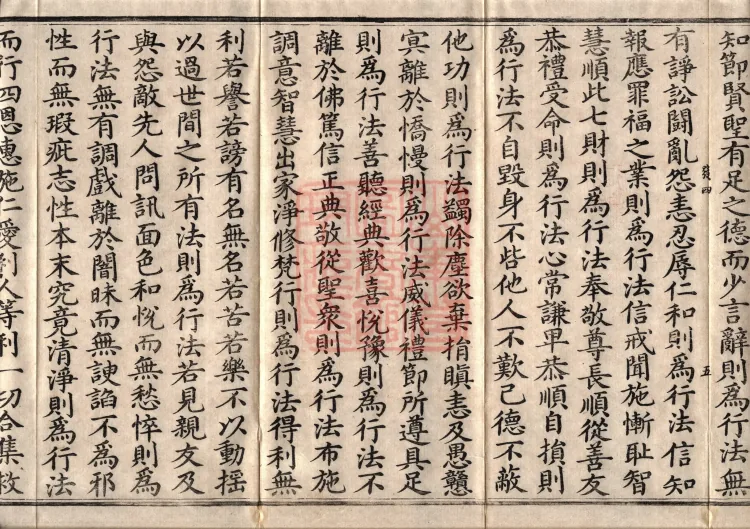 知節賢聖有足之德而少言辭則為行法無
癸四 五
有諍訟鬪亂怨恚忍辱仁和則為行法信知
報應罪福之業則為行法信戒聞施慚耻智
慧順此七財則為行法奉敬尊長順從善友
恭禮受命則為行法心常謙卑恭順自損則
為行法不自毀身不呰他人不歎己德不蔽
他功則為行法蠲除塵欲棄捐瞋恚及愚戇
冥離於憍慢則為行法威儀禮節所遵具足
則為行法善聽經典歡喜悅豫則為行法不
離於佛篤信正典敬從聖衆則為行法布施
調意智慧出家淨修梵行則為行法得利無
利若譽若謗有名無名若苦若樂不以動搖
以過世間之所有法則為行法若見親友及
與怨敵先人問訊面色和悅而無愁悴則為
行法無有調戲離於闇昧而無諛諂不為邪
性而無瑕疵志性本末究竟清淨則為行法
而行四恩惠施仁愛利人等利一切合集救